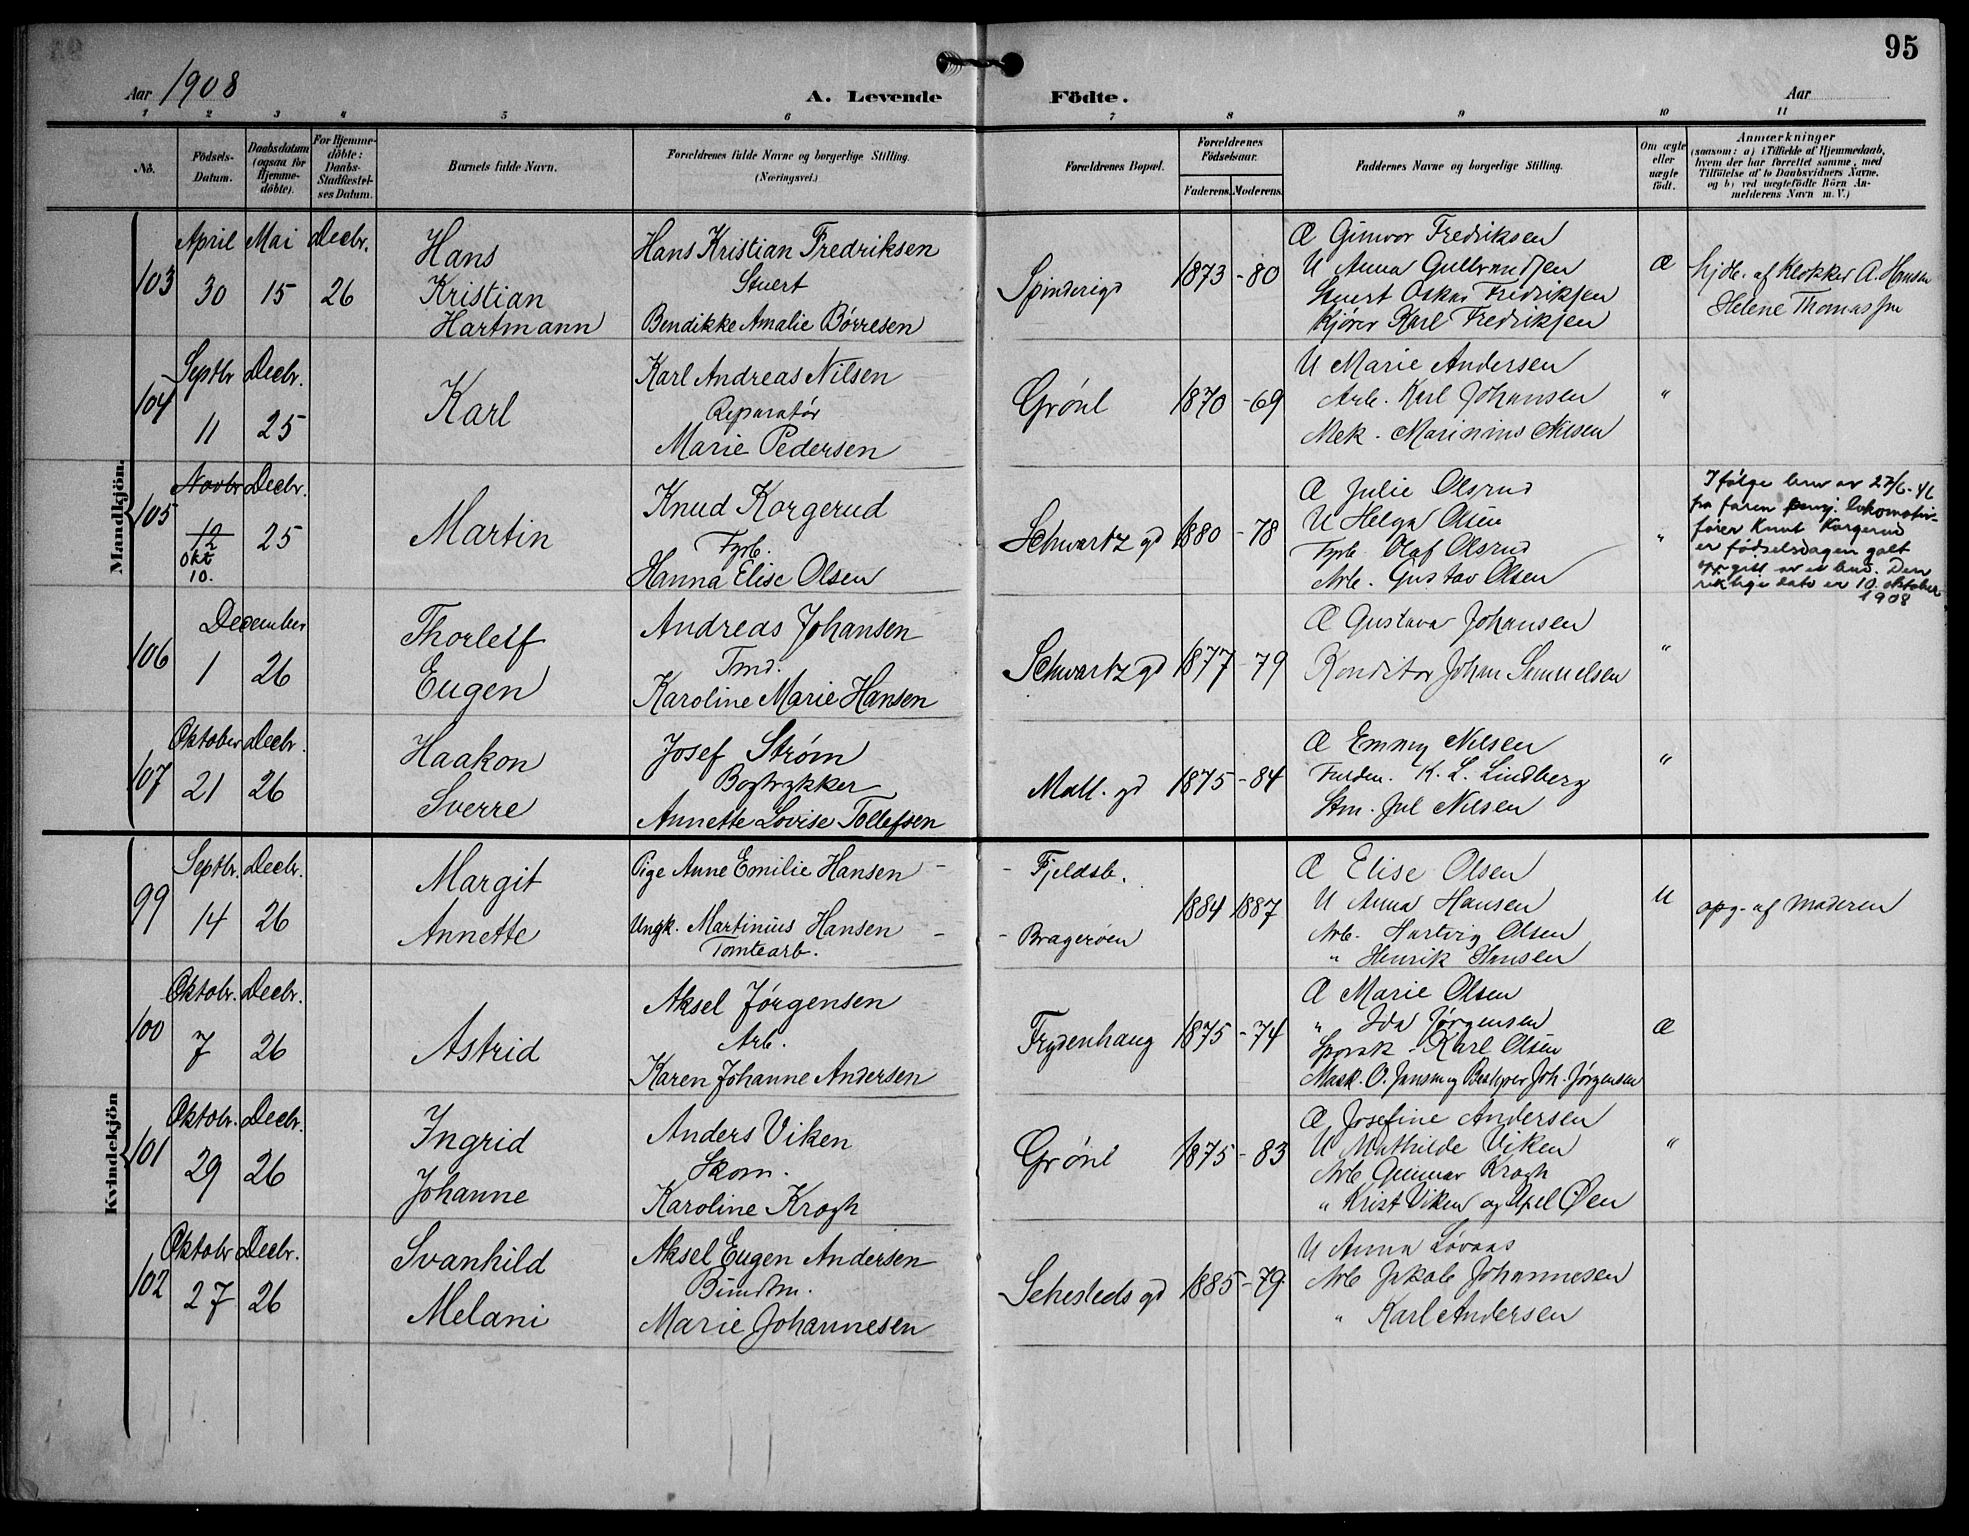 95
Aar 1908
A. Levende Födte.
Aar
1 2 3 4 5 6 7 8 9 10 11
No.
Födsels-Datum.
Daabsdatum (ogsaa for Hjemme-döbte).
For Hjemme-döbte: Daabs-Stadfæstel-ses Datum.
Barnets fulde Navn.
Forældrenes fulde Navne og borgerlige Stilling. (Næringsvei.)
Forældrenes Bopæl.
Forældrenes Födselsaar.
Faderens. Moderens.
Faddernes Navne og borgerlige Stilling.
Om ægte eller uægte födt.
Anmærkninger
(saasom: a) i Tilfælde af Hjemmedaab,
hvem der har forrettet samme, med
Tilföielse af to Daabsvidners Navne,
og b) ved uægtefödte Börn An-
melderens Navn m. V.)
Mandkjön.
103
April Mai Decbr.
30 15 26
Hans
Kristian
Hartmann
Hans Kristian Fredriksen
Stuert
Bendikke Amalie Börresen
Spinderigd
1873 - 80
Æ Gunvor Fredriksen
U Anna Gulbrandsen
Stuert Oskar Fredriksen
Kjører Karl Fredriksen
Æ
hjdb. af Klokker A. Hansen
Helene Thomassen
104
Septbr Decbr.
11 25
Karl
Karl Andreas Nilsen
Reparatör
Marie Pedersen
Grönl
1870 - 69
U Marie Andersen
Arb. Karl Johansen
Mek. Marinius Nilsen
"
105
Novbr Decbr.
12 25
Okt
10.
Martin
Knud Korgerud
Fyrb.
Hanna Elise Olsen
Schwartz gd
1880 - 78
Æ Julie Olsrud
U Helga Olsen
Fyrb. Olaf Olsrud
Arb. Gustav Olsen
"
Ifølge brev av 27/6-46
fra faren lokomotiv-
fører Knut Korgerud
er fødselsdagen galt
oppgitt av et bud. Den
riktige dato er 10. oktober
1908
106
December
1 26
Thorleif
Eugen
Andreas Johansen
Tmd.
Karoline Marie Hansen
Schwartz gd
1877 - 79
Æ Gustava Johansen
Konditor Johan Samuelsen
"
107
Oktober Decbr.
21 26
Haakon
Sverre
Josef Ström
Bogtrykker
Annette Lovise Tollefsen
Mall. gd
1875 - 84
Æ Emmy Nilsen
K. L. Lindberg
Stm. Jul Nilsen
"
Kvindekjön
99
Septbr. Decbr.
14 26
Margit
Annette
Pige Anne Emilie Hansen -
Ungk. Martinius Hansen -
Tomtearb.
- Fjeldsb.
- Bragerøen
1884 1887
Æ Elise Olsen
U Anna Hansen
Arb. Hartvig Olsen
" Henrik Hansen
U
opg. af Moderen
100
Oktobr. Decbr.
7 26
Astrid
Aksel Jörgensen
Arb.
Karen Johanne Andersen
Frydenhaug
1875 - 74
Æ Marie Olsen
" Ida Jörgensen
Sporsk. Karl Olsen
Mask. O. Jansen og Joh. Jörgensen
Æ
101
Oktobr. Decbr.
29 26
Ingrid
Johanne
Anders Viken
Skom.
Karoline Krogh
Grönl
1875 - 83
Æ Josefine Andersen
U Mathilde Viken
Arb Gunnar Krogh
" Krist Viken og Axel Øen
"
102
Oktobr Decbr.
27 26
Svanhild
Melani
Aksel Eugen Andersen
Bundtm.
Marie Johannesen
Sehesteds gd
1885 - 79
U Anna Løvaas
Arb Jakob Johannesen
" Karl Andersen